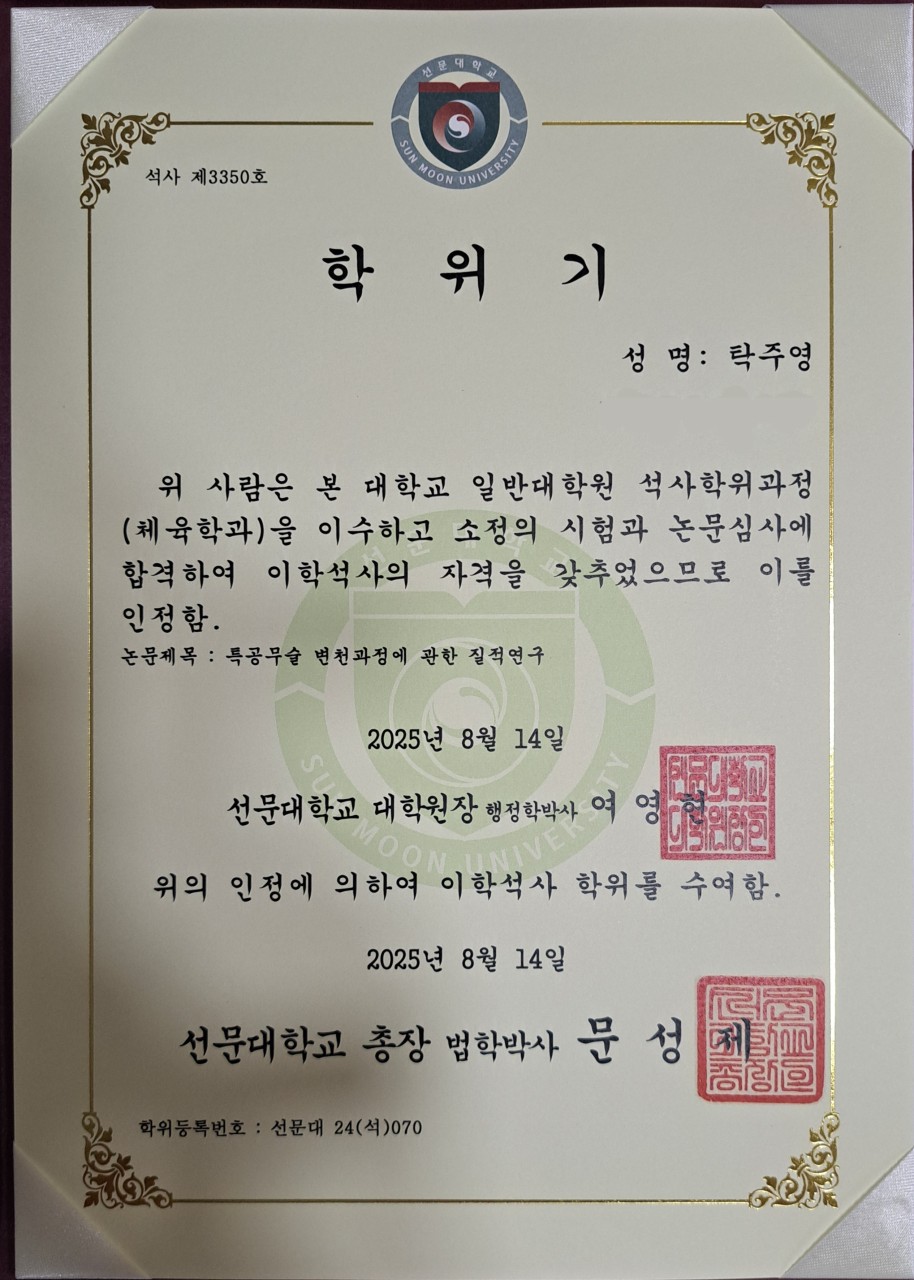 선문대학교
SUN MOON UNIVERSITY
석사 제3350호
학 위 기
성 명: 탁주영
위 사람은 본 대학교 일반대학원 석사학위과정
(체육학과)을 이수하고 소정의 시험과 논문심사에
합격하여 이학석사의 자격을 갖추었으므로 이를
인정함.
논문제목 : 특공무술 변천과정에 관한 질적연구
2025년 8월 14일
선문대학교 대학원장 행정학박사 여 영 현
위의 인정에 의하여 이학석사 학위를 수여함.
2025년 8월 14일
선문대학교 총장 법학박사 문 성 제
학위등록번호 : 선문대 24(석)070
선문대학교
SUN MOON UNIVERSITY